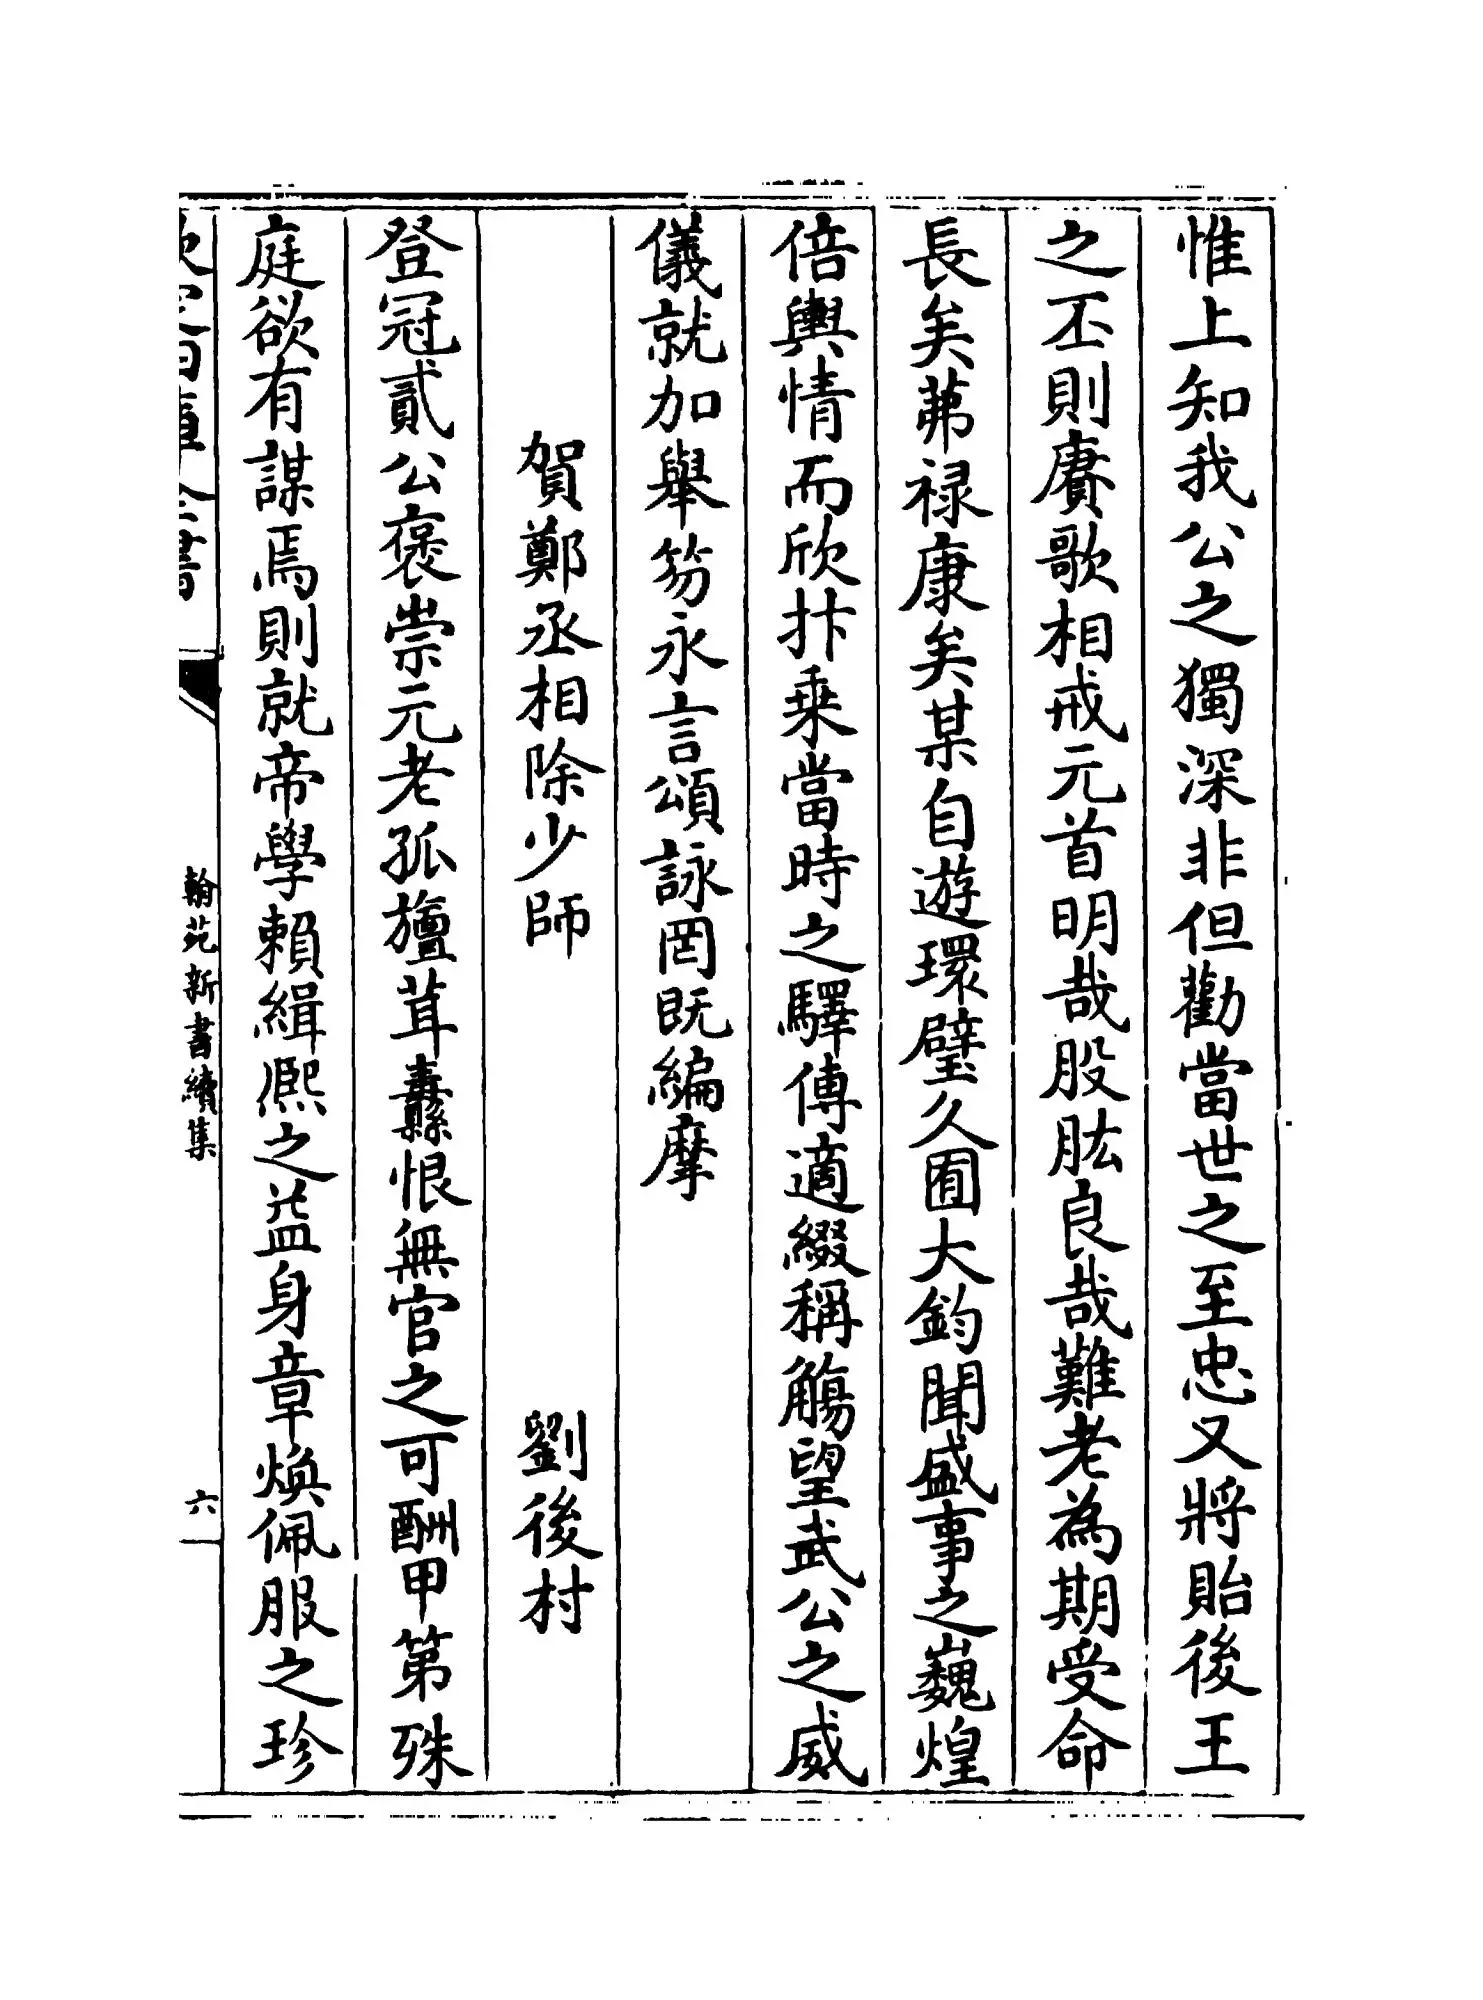 惟上知我公之獨深非但勸當世之至忠又將貽後王
之丕則賡歌相戒元首明哉股肱良哉難老為期受命
長矣茀禄康矣某自遊環璧久囿大鈞聞盛事之巍煌
倍輿情而欣抃乗當時之驛傳適綴稱觴望武公之威
儀就加舉笏永言頌詠罔既編摩
賀鄭丞相除少師 劉後村
登冠貳公褒崇元老孤旜茸纛恨無官之可酬甲第殊
庭欲有謀焉則就帝學賴緝熈之益身章煥佩服之珍
欽定四庫全書
翰苑新書續集
六